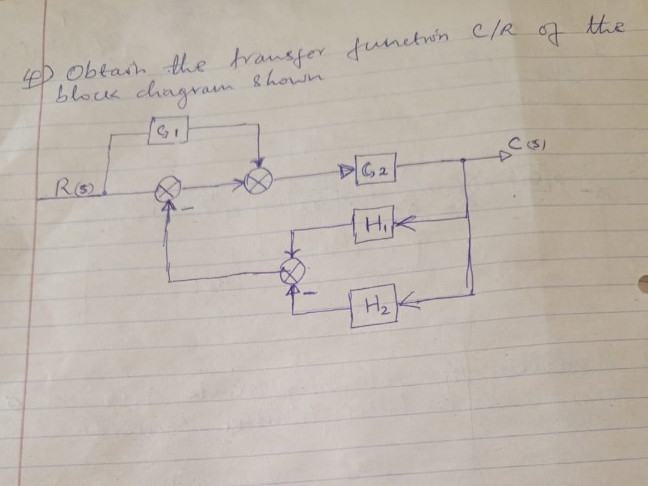 4) Obtain the transfer function C/R of the
block diagram shown
G1
C(s)
R(s)
G2
-
H1
-
H2